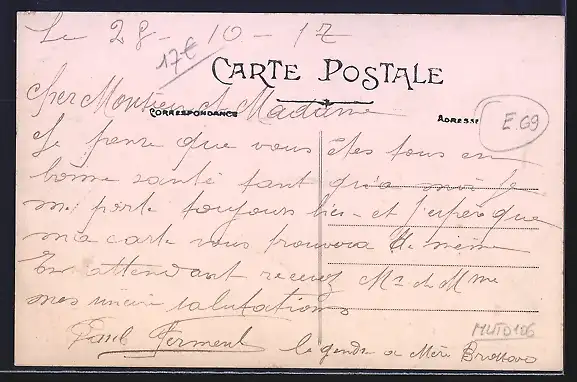 Le 28 - 10 - 17
17€
CARTE POSTALE
Cher Monsieur et Madame
CORRESPONDANCE
ADRESSE
E.69
Je pense que vous êtes tous en
bonne santé tant qu'a moi je
me porte toujours bien et j'espère que
ma carte vous trouvera de même
En attendant recevez Mr et Mme
mes sincère salutations
Paul Ferment le gendre a Mère
MUTO106